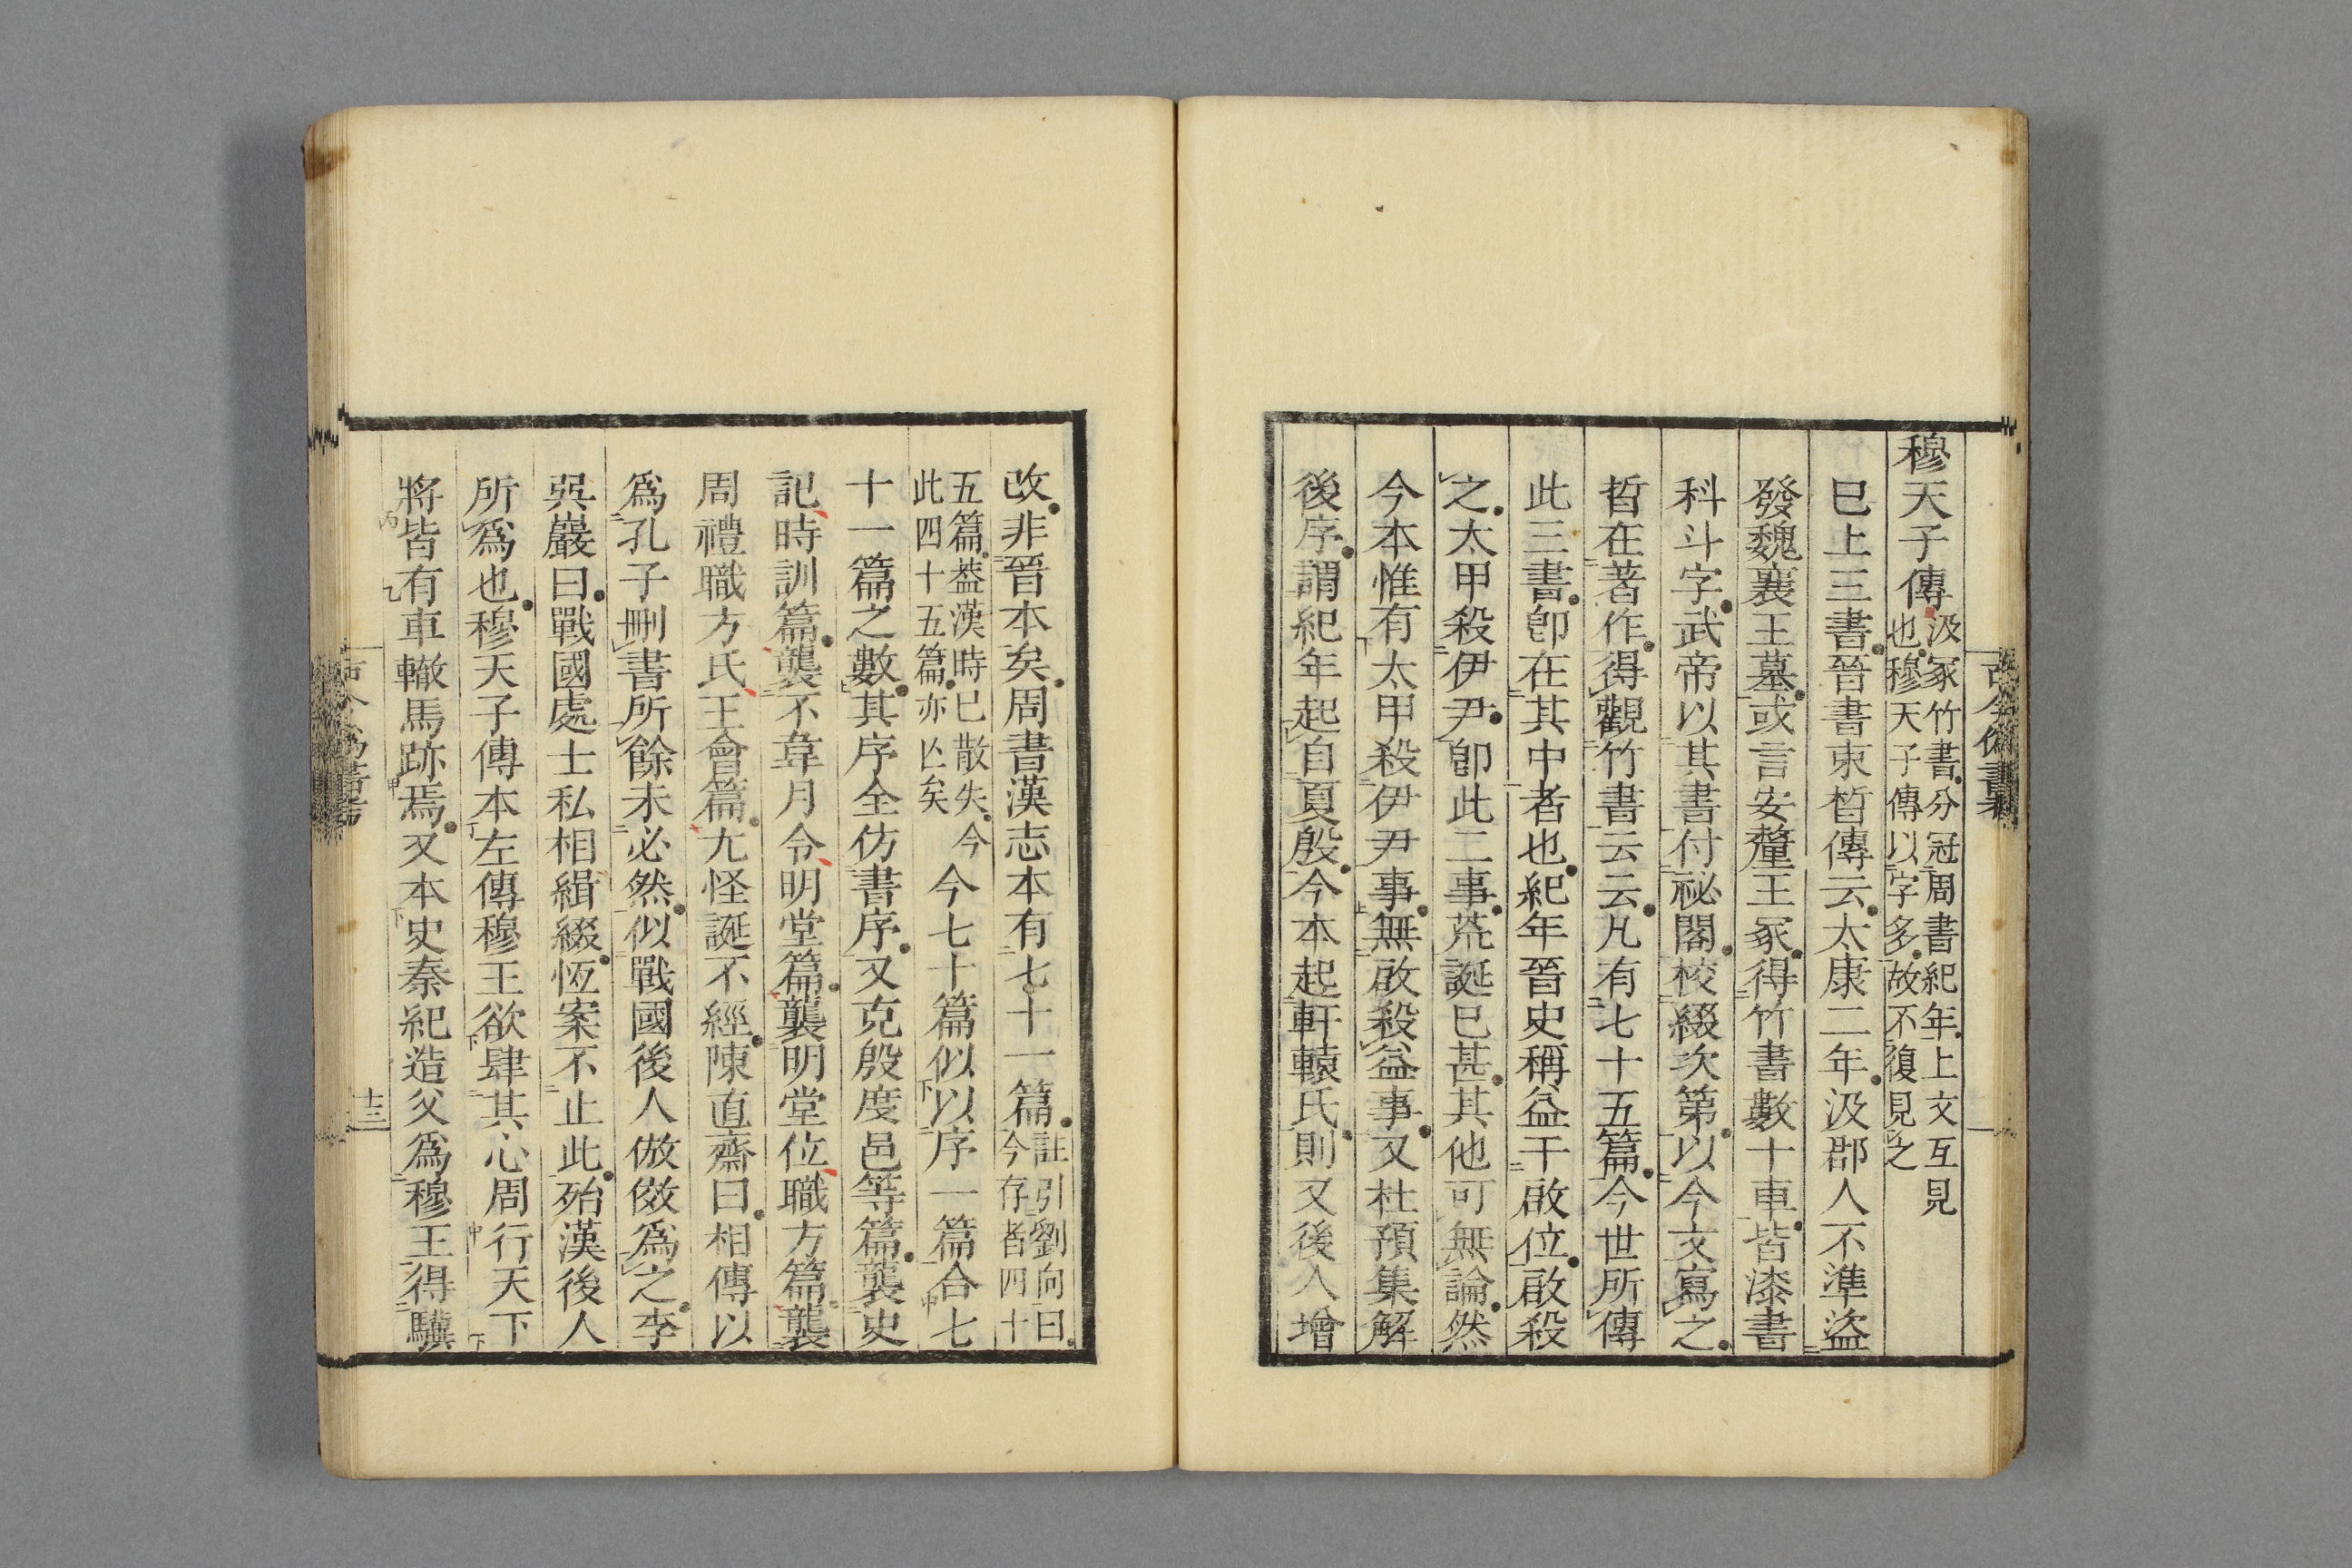 穆天子傳汲冢竹書分冠周書紀年上文互見
也穆天子傳以字多故不復見之
已上三書晉書束晳傳云太康二年汲郡人不準盜
發魏襄王墓或言安釐王冢得竹書數十車皆漆書
科斗字武帝以其書付祕閣校綴次第以今文寫之
晳在著作得觀竹書云云凡有七十五篇今世所傳
此三書卽在其中者也紀年晉史稱益干啟位啟殺
之太甲殺伊尹卽此二事荒誕已甚其他可無論然
今本惟有太甲殺伊尹事無啟殺益事又杜預集解
後序謂紀年起自夏殷今本起軒轅氏則又後人增
改非晉本矣周書漢志本有七十一篇註引劉向曰
今存者四十
五篇葢漢時已散失今
此四十五篇亦亡矣
今七十篇似以序一篇合七
十一篇之數其序全仿書序又克殷度邑等篇襲史
記時訓篇襲不韋月令明堂篇襲明堂位職方篇襲
周禮職方氏王會篇尤怪誕不經陳直齋曰相傳以
爲孔子刪書所餘未必然似戰國後人倣傚爲之李
巽巖曰戰國處士私相緝綴恆案不止此殆漢後人
所爲也穆天子傳本左傳穆王欲肆其心周行天下
將皆有車轍馬跡焉又本史秦紀造父爲穆王得驥
十三